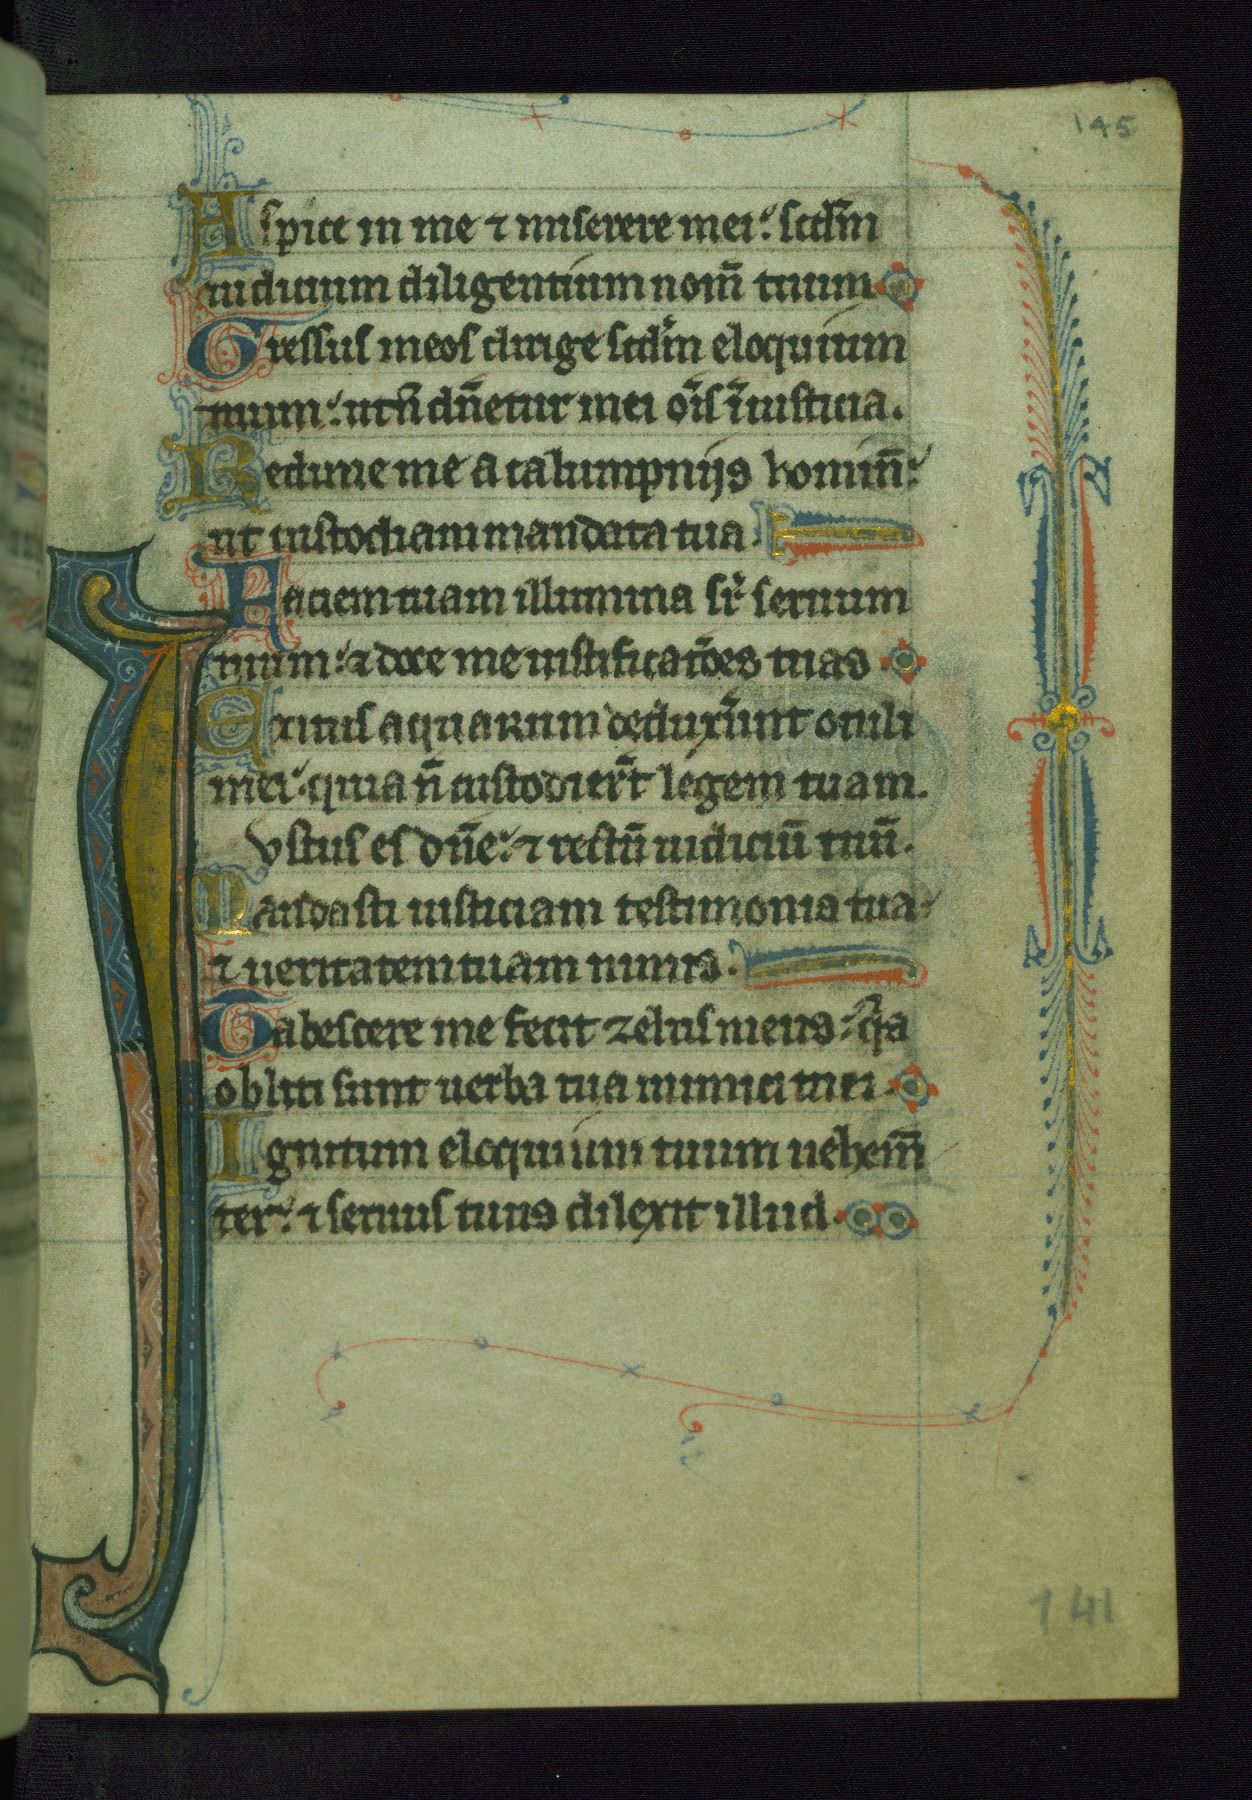 145
Aspice in me ⁊ miserere mei: scdm̄
iudicium diligentium nom̄ tuum
Gressus meos dirige scdm̄ eloquium
tuum: ut ñ dñetur mei oı̄s ı̄iusticia.
Redime me a calumpnijs homin̄:
ut custodiam mandata tua.
Faciem tuam illumina sr̄ seruum
tuum: ⁊ doce me iustificatōes tuas
Exitus aquarum deduxer̄unt oculi
mei: quia ñ custodier̄t legem tuam.
Iustus es dñe: ⁊ rectū iudiciū tuū.
Mandasti iusticiam testimonia tua:
⁊ ueritatem tuam nimis.
Tabescere me fecit zelus meus: qı̄a
obliti sunt uerba tua inimici mei.
Ignitum eloquium tuum uehem̄
ter: ⁊ seruus tuus dilexit illud.
141